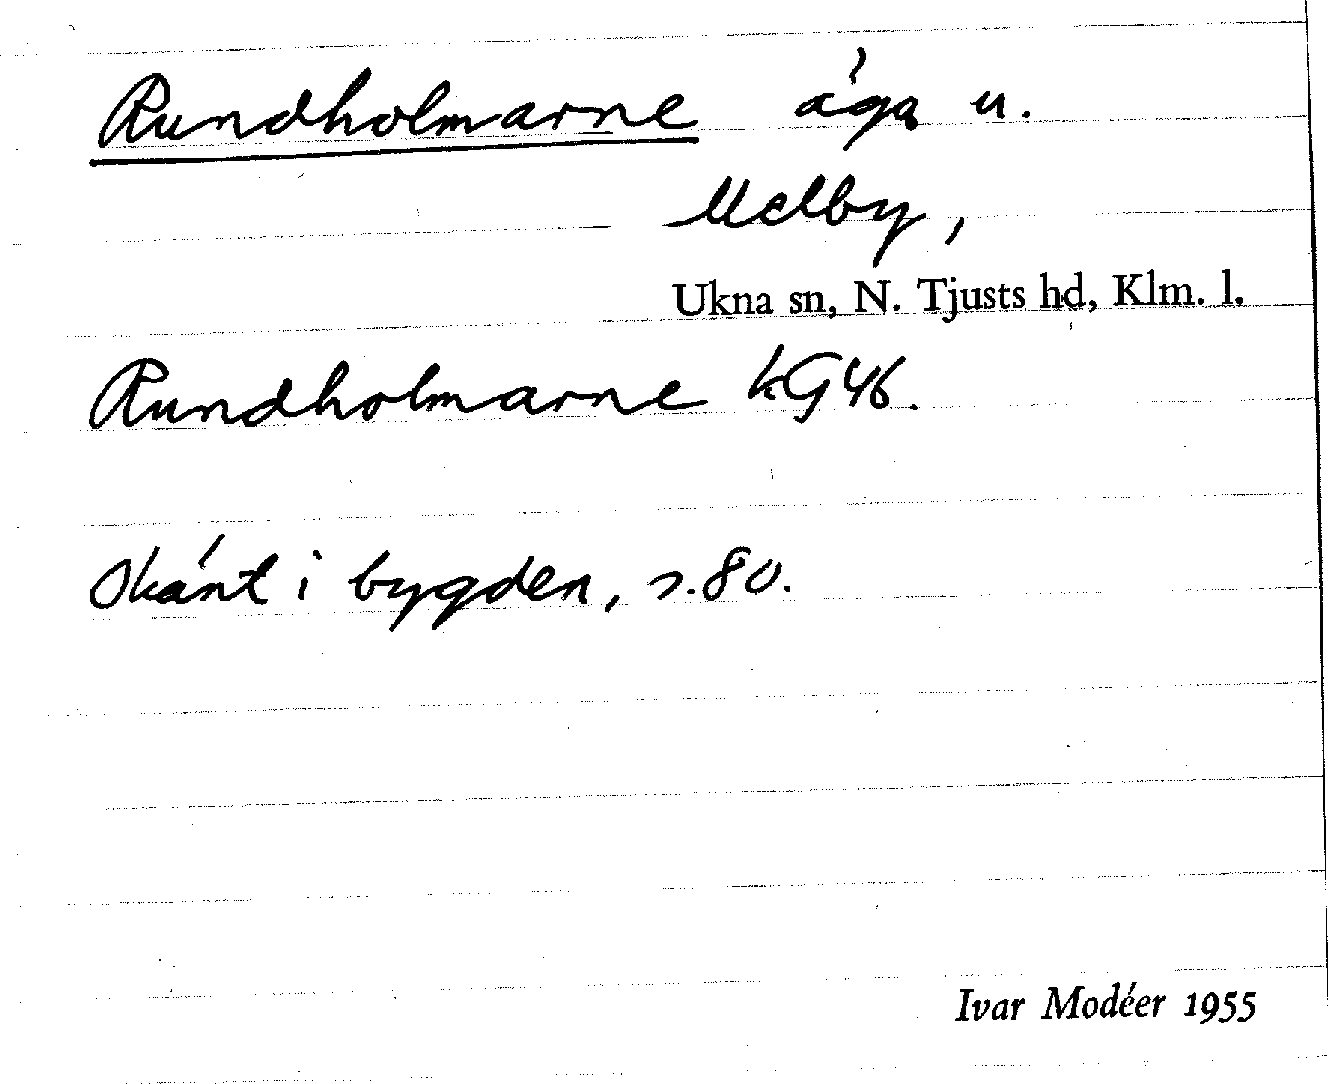 Rundholmarne äga u.
Melby,
Ukna sn, N. Tjusts hd, Klm. l.
Rundholmarne kG46.
Okänt i bygden, s.80.
Ivar Modéer 1955